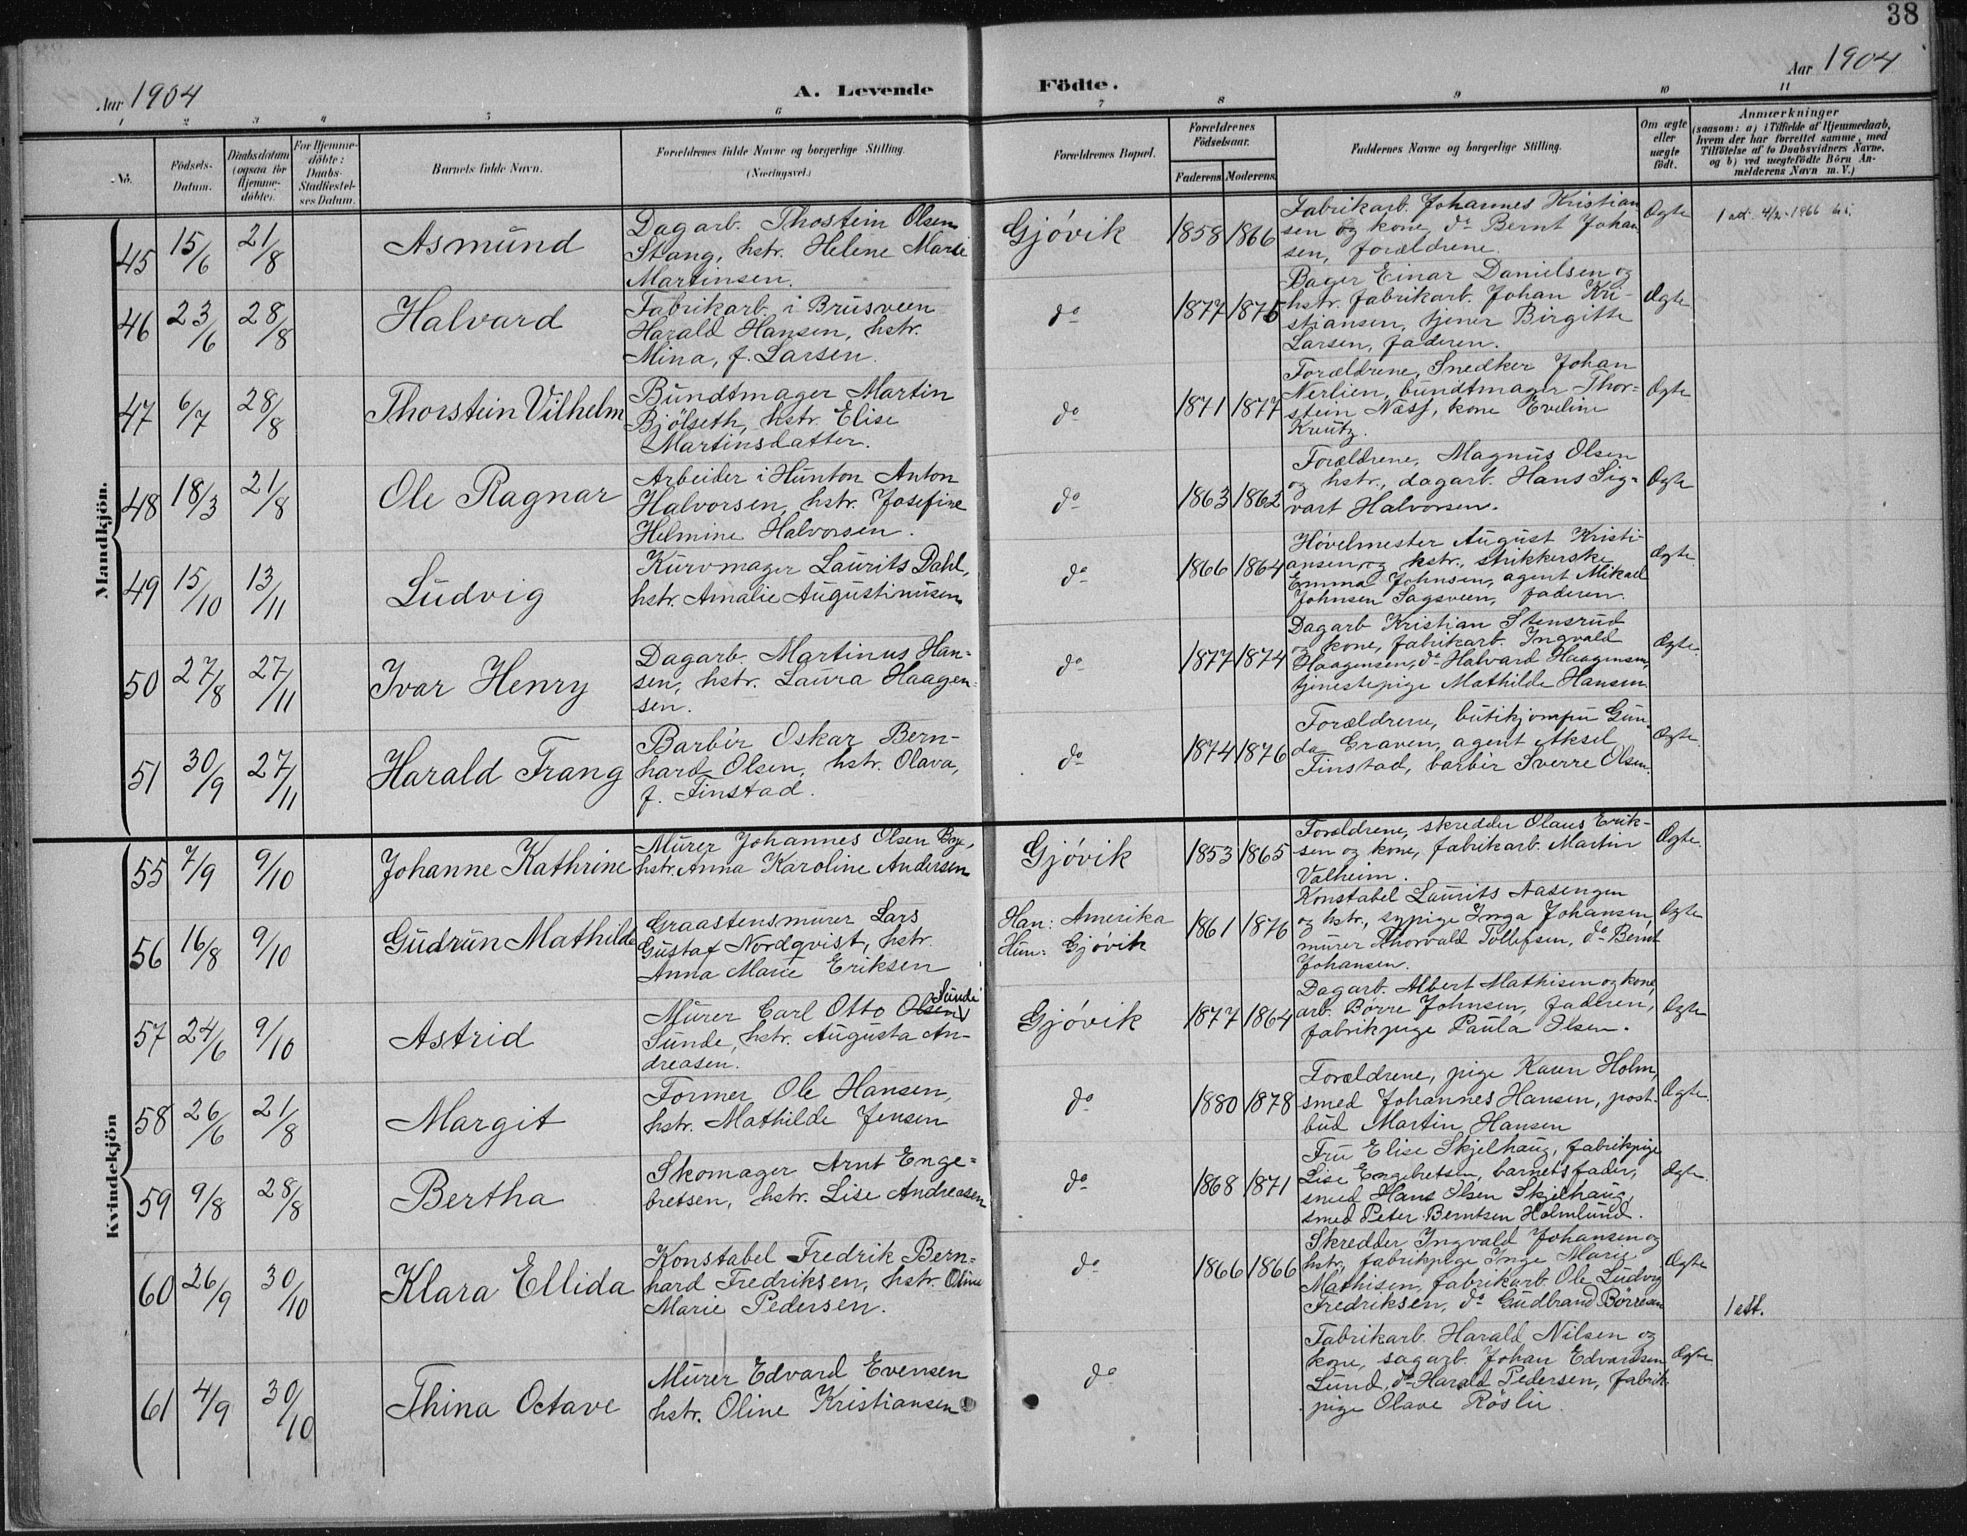 38
Aar 1904
A. Levende
Födte.
Aar 1904
1 2 3 4 5 6 7 8 9 10 11
No.
Födsels-
Datum.
Daabsdatum
(ogsaa for
Hjemme-
döbte).
For Hjemme-
döbte:
Daabs-
Stadfæstel-
ses Datum.
Barnets fulde Navn.
Forældrenes fulde Navne og borgerlige Stilling.
(Næringsvei.)
Forældrenes Bopæl.
Forældrenes
Födselsaar.
Faderens. Moderens.
Faddernes Navne og borgerlige Stilling.
Om ægte
eller
uægte
født.
Anmærkninger
(saasom: a) i Tilfælde af Hjemmedaab,
hvem der har forrettet samme, med
Tilföielse af to Daabsvidners Navne,
og b) ved uægtefödte Börn An-
melderens Navn m. V.)
Mandkjön.
45 15/6 21/8 Asmund
Dagarb. Thostein Olsen
Stang, hstr. Helene Marie
Martinsen.
Gjøvik 1858 1866
Fabrikarb. Johannes Kristian
sen og kone, do Bernt Johan
sen, forældrene.
Ægte
1 att. 4/2-1966
46 23/6 28/8 Halvard
Fabrikarb. i Brusveen
Harald Hansen, hstr.
Mina, f. Larsen.
do 1877 1875
Bager Einar Danielsen og
hstr. fabrikarb. Johan Kri-
stiansen, tjener Birgitte
Larsen, faderen.
Ægte
47 6/7 28/8 Thorstein Vilhelm
Bundtmager Martin
Bjölseth, hstr. Elise
Martinsdatter.
do 1871 1877
Forældrene, Snedker Johan
Nerlien, bundtmager Thor-
stein Næss, kone Eveline
Kreutz.
Ægte
48 18/3 21/8 Ole Ragnar
Arbeider i Hunton Anton
Halvorsen, hstr. Josefine
Helmine Halvorsen.
do 1863 1862
Forældrene, Magnus Olsen
og hstr., dagarb. Hans Sig-
vart Halvorsen.
Ægte
49 15/10 13/11 Ludvig
Kurvmager Laurits Dahl,
hstr. Amalie Augustinusen
do 1866 1864
Høvelmester August Kristi-
ansen og hstr., strikkerske
Emma Johnsen, agent Mikael
Johnsen Sagsveen, faderen.
Ægte
50 27/8 27/11 Ivar Henry
Dagarb. Martinus Han-
sen, hstr. Laura Haagen-
sen.
do 1877 1874
Dagarb Kristian Stensrud
og kone, fabrikarb. Ingvald
Haagensen, do Halvard Haagensen,
tjenestepige Mathilde Hansen
Ægte.
51 30/9 27/11 Harald Frang
Barbér Oskar Bern-
hard Olsen, hstr. Olava,
f. Finstad.
do 1874 1876
Forældrene, butikjomfru Gun-
da Graven, agent Aksel
Finstad, barbér Sverre Olsen.
Ægte.
Kvindekjön
55 7/9 9/10 Johanne Kathrine
Murer Johannes Olsen
hstr. Anna Karoline Andersen
Gjøvik 1853 1865
Forældrene, skredder Olaus Erik-
sen og kone, fabrikarb. Martin
Valheim.
Ægte.
56 16/8 9/10 Gudrun Mathilde
Graastensmurer Lars
Gustaf Nordqvist, hstr.
Anna Marie Eriksen
Han: Amerika
Hun: Gjøvik
1861 1876
Konstabel Laurits Aasengen
og hstr., sypige Inga Johansen,
murer Thorvald Tollefsen, do Bernt
Johansen.
Ægte
57 24/6 9/10 Astrid
Sunde
Murer Carl Otto Olsen
Sunde, hstr. Augusta An-
dreasen.
Gjøvik 1877 1864
Dagarb. Albert Mathisen og kone,
arb. Børre Johnsen, faderen,
fabrikpige Paula Olsen.
Ægte
58 26/6 21/8 Margit
Former Ole Hansen,
hstr. Mathilde Jensen
do 1880 1878
Forældrene, pige Karen Holm,
smed Johannes Hansen, post-
bud Martin Hansen
Ægte.
59 9/8 28/8 Bertha
Skomager Arnt Enge-
bretsen, hstr. Lise Andreasen
do 1868 1871
Fru Elise Skjelhaug, fabrikpige
Lise Engebretsen, barnets fader,
smed Hans Olsen Skjelhaug,
smed Peter Berntsen Holmlund.
Ægte.
60 26/9 30/10 Klara Ellida
Konstabel Fredrik Bern-
hard Fredriksen, hstr. Oline
Marie Pedersen.
do 1866 1866
Skredder Ingvald Johansen og
hstr., fabrikpige Inge Marie
Mathisen, fabrikarb. Ole Ludvig
Fredriksen, do Gudbrand Børresen
Ægte
1 att.
61 4/9 30/10 Thina Octave
Murer Edvard Evensen
hstr. Oline Kristiansen
do
Fabrikarb. Harald Nilsen og
kone, sagarb. Johan Edvardsen
Lund, do Harald Pedersen, fabrik-
pige Olave Röslie.
Ægte